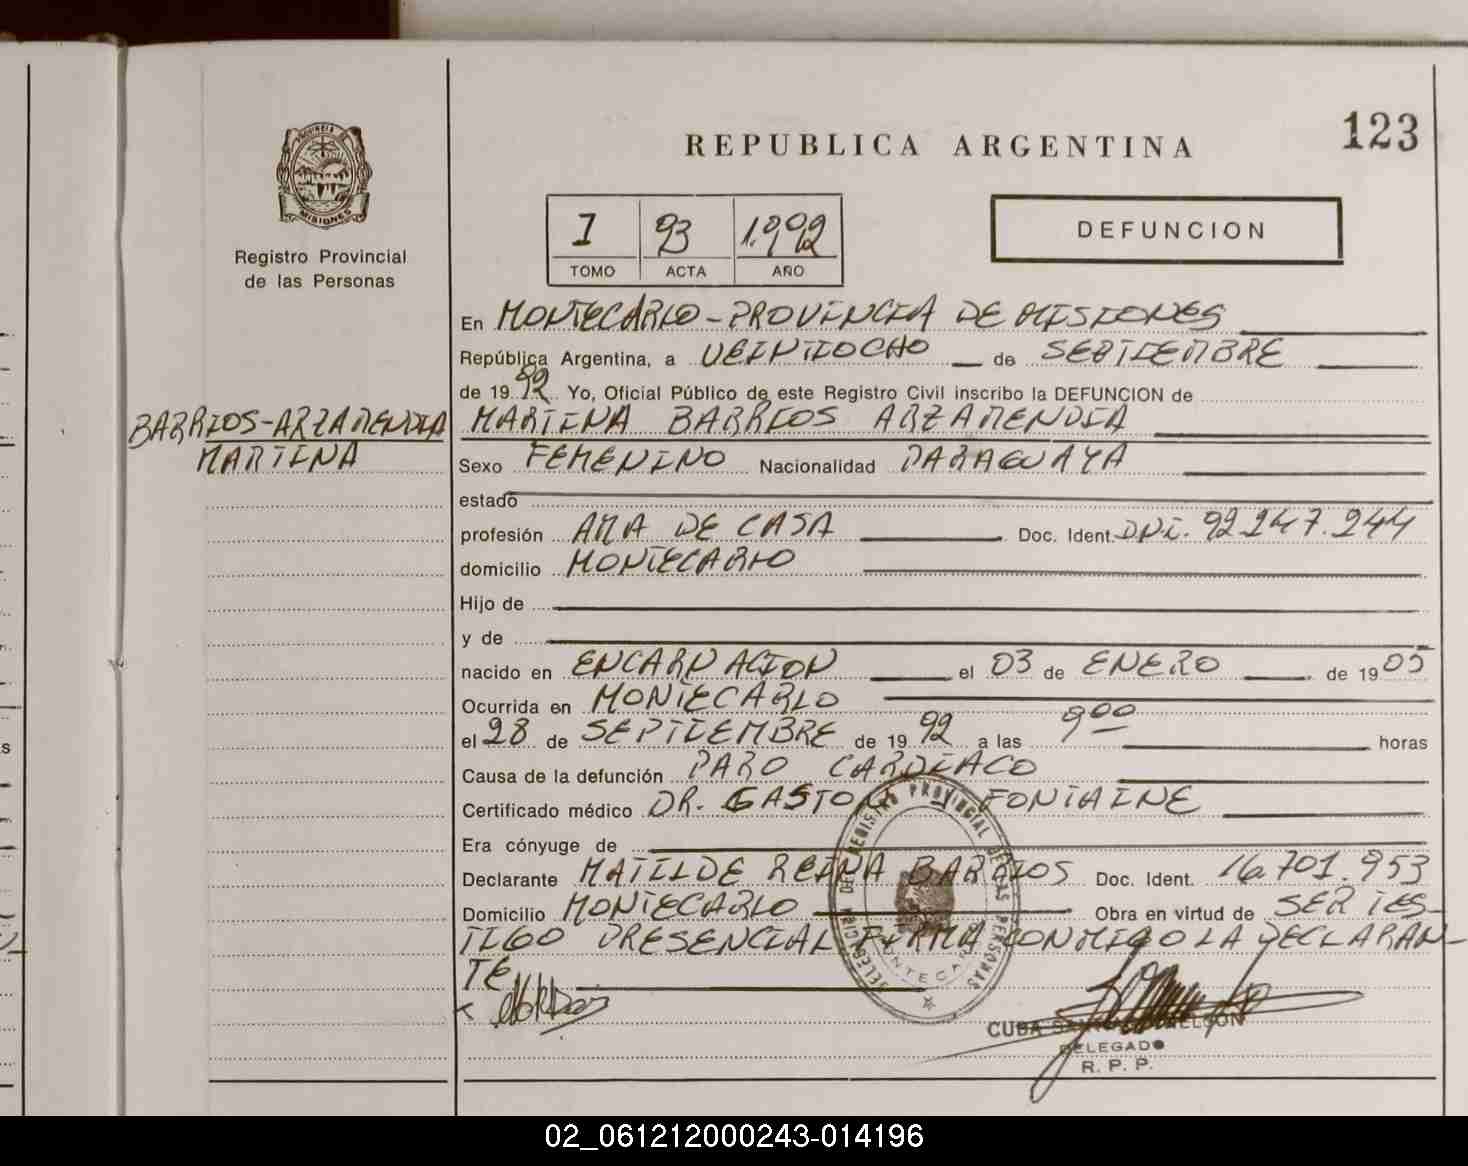 PROVINCIA DE MISIONES
Registro Provincial
de las Personas
BARRIOS-ARZAMENDIA
MARTINA
123
REPUBLICA ARGENTINA
I 93 1.992
TOMO ACTA AÑO
DEFUNCION
En MONTECARLO-PROVINCIA DE MISIONES
República Argentina, a VEINTIOCHO de SEPTIEMBRE
de 19 92 Yo, Oficial Público de este Registro Civil inscribo la DEFUNCION de
MARTINA BARRIOS ARZAMENDIA
Sexo FEMENINO Nacionalidad PARAGUAYA
estado
profesión AMA DE CASA Doc. Ident. DNI. 92.247.244
domicilio MONTECARLO
Hijo de
y de
nacido en ENCARNACION el 03 de ENERO de 19 05
Ocurrida en MONTECARLO
el 28 de SEPTIEMBRE de 19 92 a las 9 00 horas
Causa de la defunción PARO CARDIACO
Certificado médico DR. GASTON FONTAINE
Era cónyuge de
Declarante MATILDE REINA BARRIOS Doc. Ident. 16.701.953
Domicilio MONTECARLO Obra en virtud de SER TES-
TIGO PRESENCIAL FIRMA CONMIGO LA DECLARAN-
TE
DELEGACION DEL REGISTRO PROVINCIAL DE LAS PERSONAS
CUBA NELSON
DELEGADO
R. P. P.
02_061212000243-014196